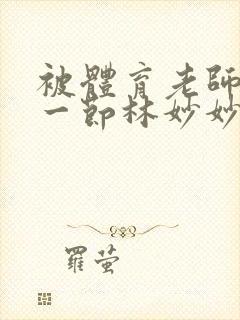 被體育老師
一節林妙妙
羅萤